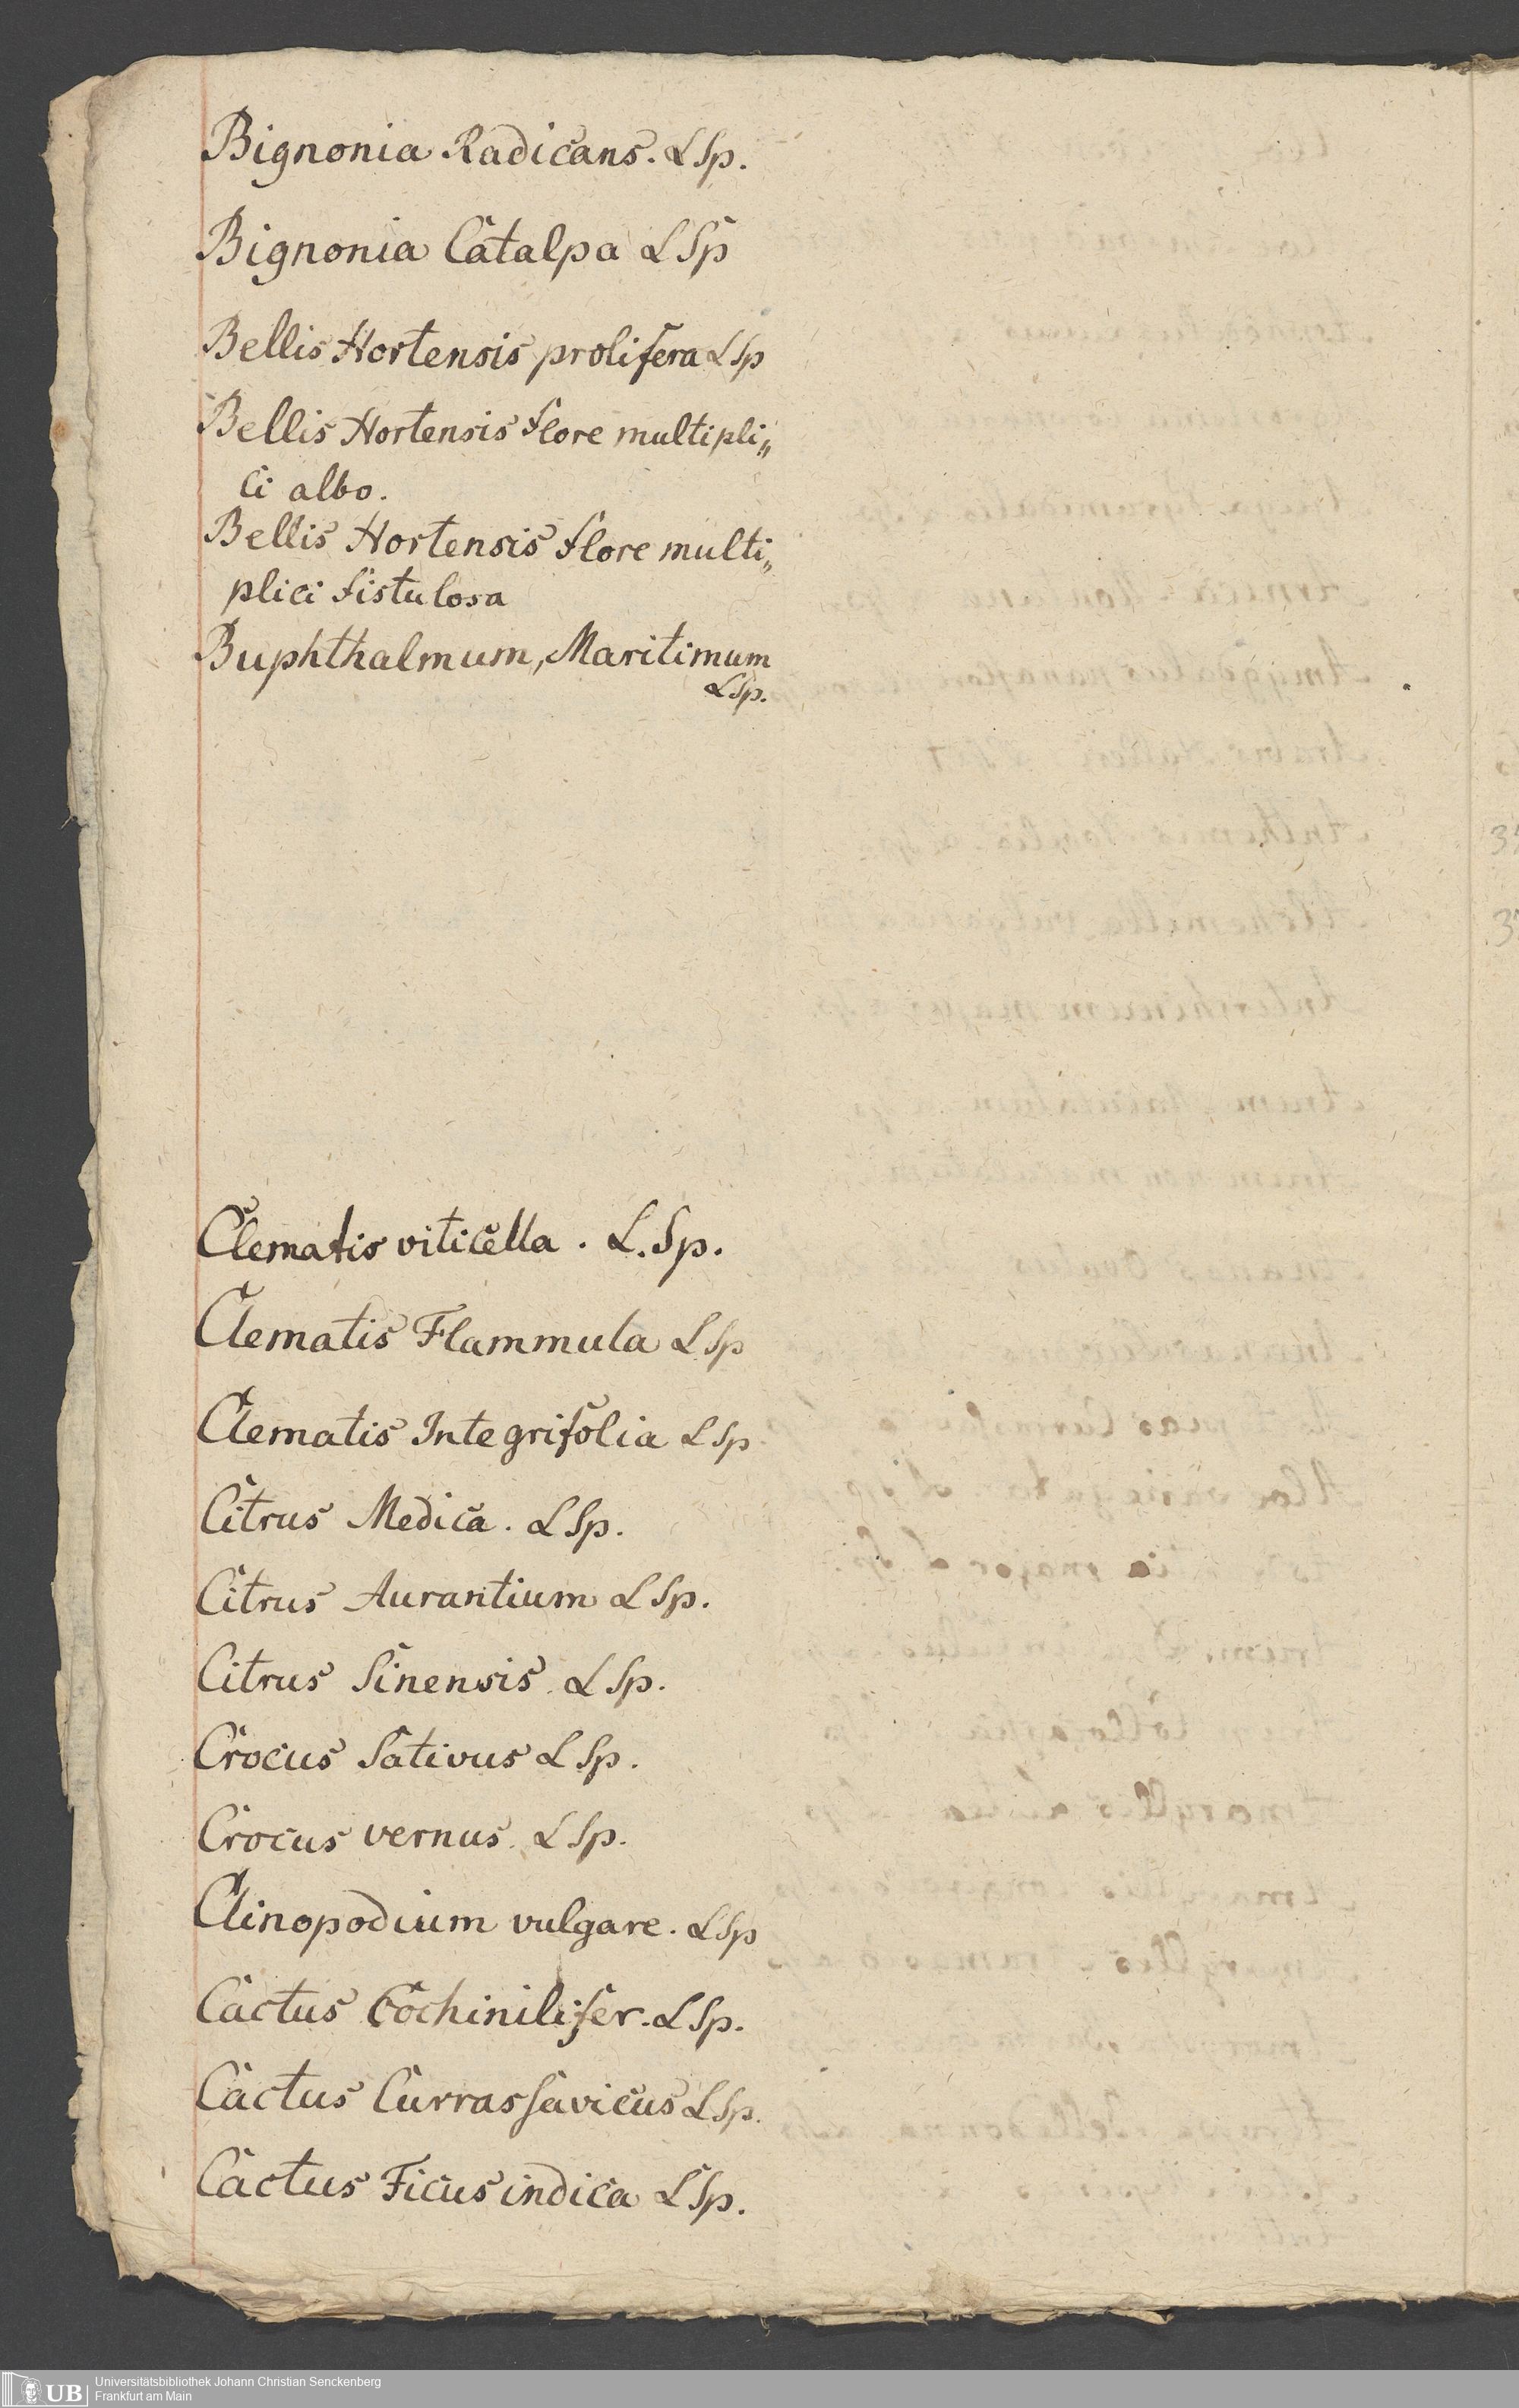 Bignonia Radicans. L Sp.
Bignonia Catalpa L Sp
Bellis Hortensis prolifera L Sp
Bellis Hortensis flore multipli„
ci albo.
Bellis Hortensis flore multi„
plici fistulosa
Buphthalmum, Maritimum
L Sp.
Clematis viticella . L. Sp.
Clematis Flammula L Sp
Clematis Integrifolia L Sp
Citrus Medica. L Sp.
Citrus Aurantium L Sp.
Citrus Sinensis. L Sp.
Crocus Sativus L Sp.
Crocus vernus. L Sp.
Clinopodium vulgare. L Sp
Cactus Cochinilifer. L Sp.
Cactus Currassavicus L Sp.
Cactus Ficus indica L Sp.
UB
Universitätsbibliothek Johann Christian Senckenberg
Frankfurt am Main